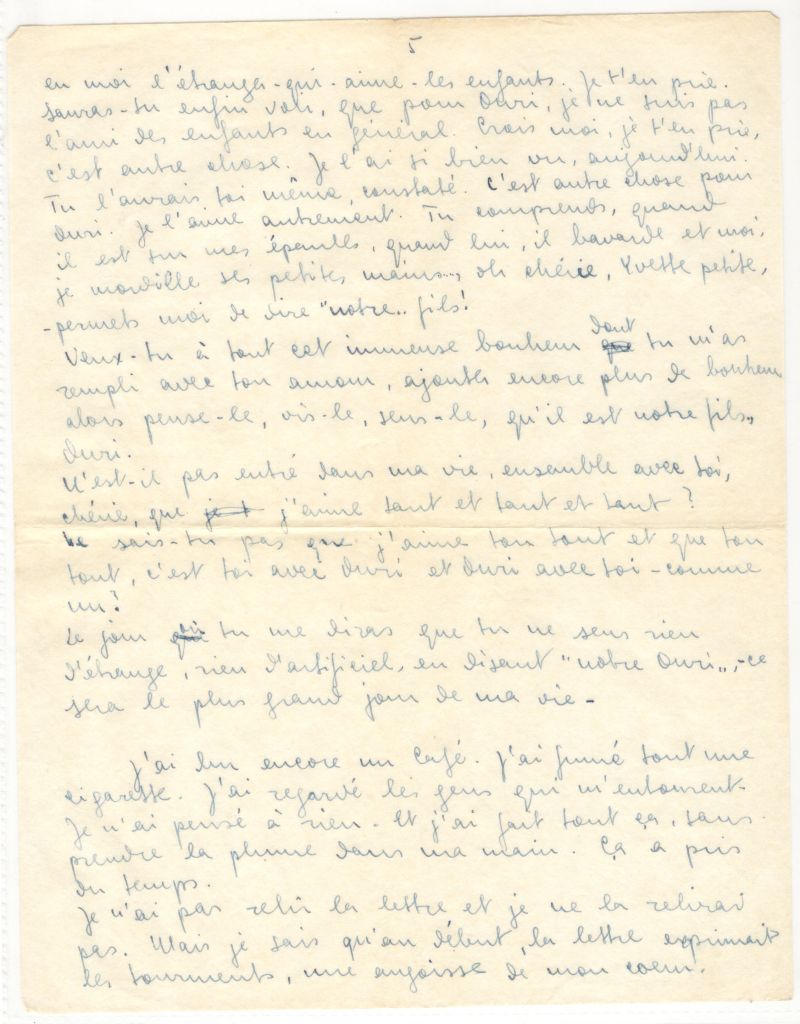 5
en moi l'étranger-qui-aime-les enfants. Je t'en prie.
Sauras-tu enfin voir, que pour Ouri, je ne suis pas
l'ami des enfants en général. Crois moi, je t'en prie,
c'est autre chose. Je l'ai si bien vu, aujourd'hui.
Tu l'aurais toi même, constaté. C'est autre chose pour
Ouri. Je l'aime autrement. Tu comprends, quand
il est sur mes épaules, quand lui, il bavarde et moi,
je mordille ses petites mains..., oh chérie, Yvette petite,
-permets moi de dire "notre" fils!
Veux-tu à tout cet immense bonheur dont tu m'as
rempli avec ton amour, ajouter encore plus de bonheur
alors pense-le, vis-le, sens-le, qu'il est notre fils,
Ouri.
N'est-il pas entré dans ma vie, ensemble avec toi,
chérie, que j'aime tant et tant et tant ?
Ne sais-tu pas que j'aime ton tout et que ton
tout, c'est toi avec Ouri et Ouri avec toi - comme
un?
Le jour où tu me diras que tu ne sens rien
d'étrange, rien d'artificiel, en disant "notre Ouri", -ce
sera le plus grand jour de ma vie-
J'ai bu encore un café. J'ai fumé tout une
cigarette. J'ai regardé les gens qui m'entourent.
Je n'ai pensé à rien - Et j'ai fait tout ça, sans
prendre la plume dans ma main. Ça a pris
du temps.
Je n'ai pas relu la lettre et je ne la relirai
pas. Mais je sais qu'au début, la lettre exprimait
les tourments, une angoisse de mon coeur.